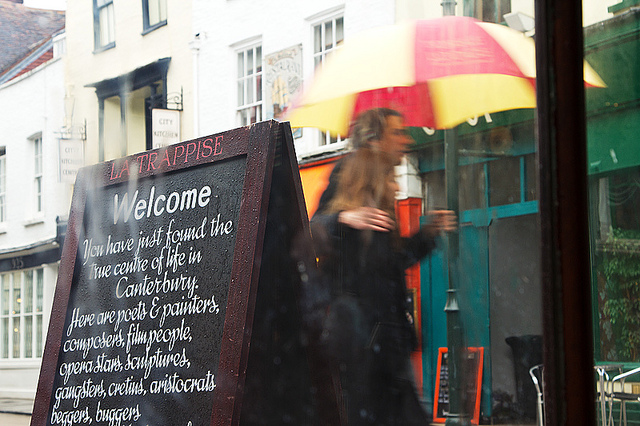 LA TRAPPISE
Welcome
You have just found the
True centre of life in
Canterbury.
Here are poets & painters,
composers, film people,
opera stars, sculptures,
gangsters, cretins, aristocrats
beggers, buggers
CITY
KITCHEN